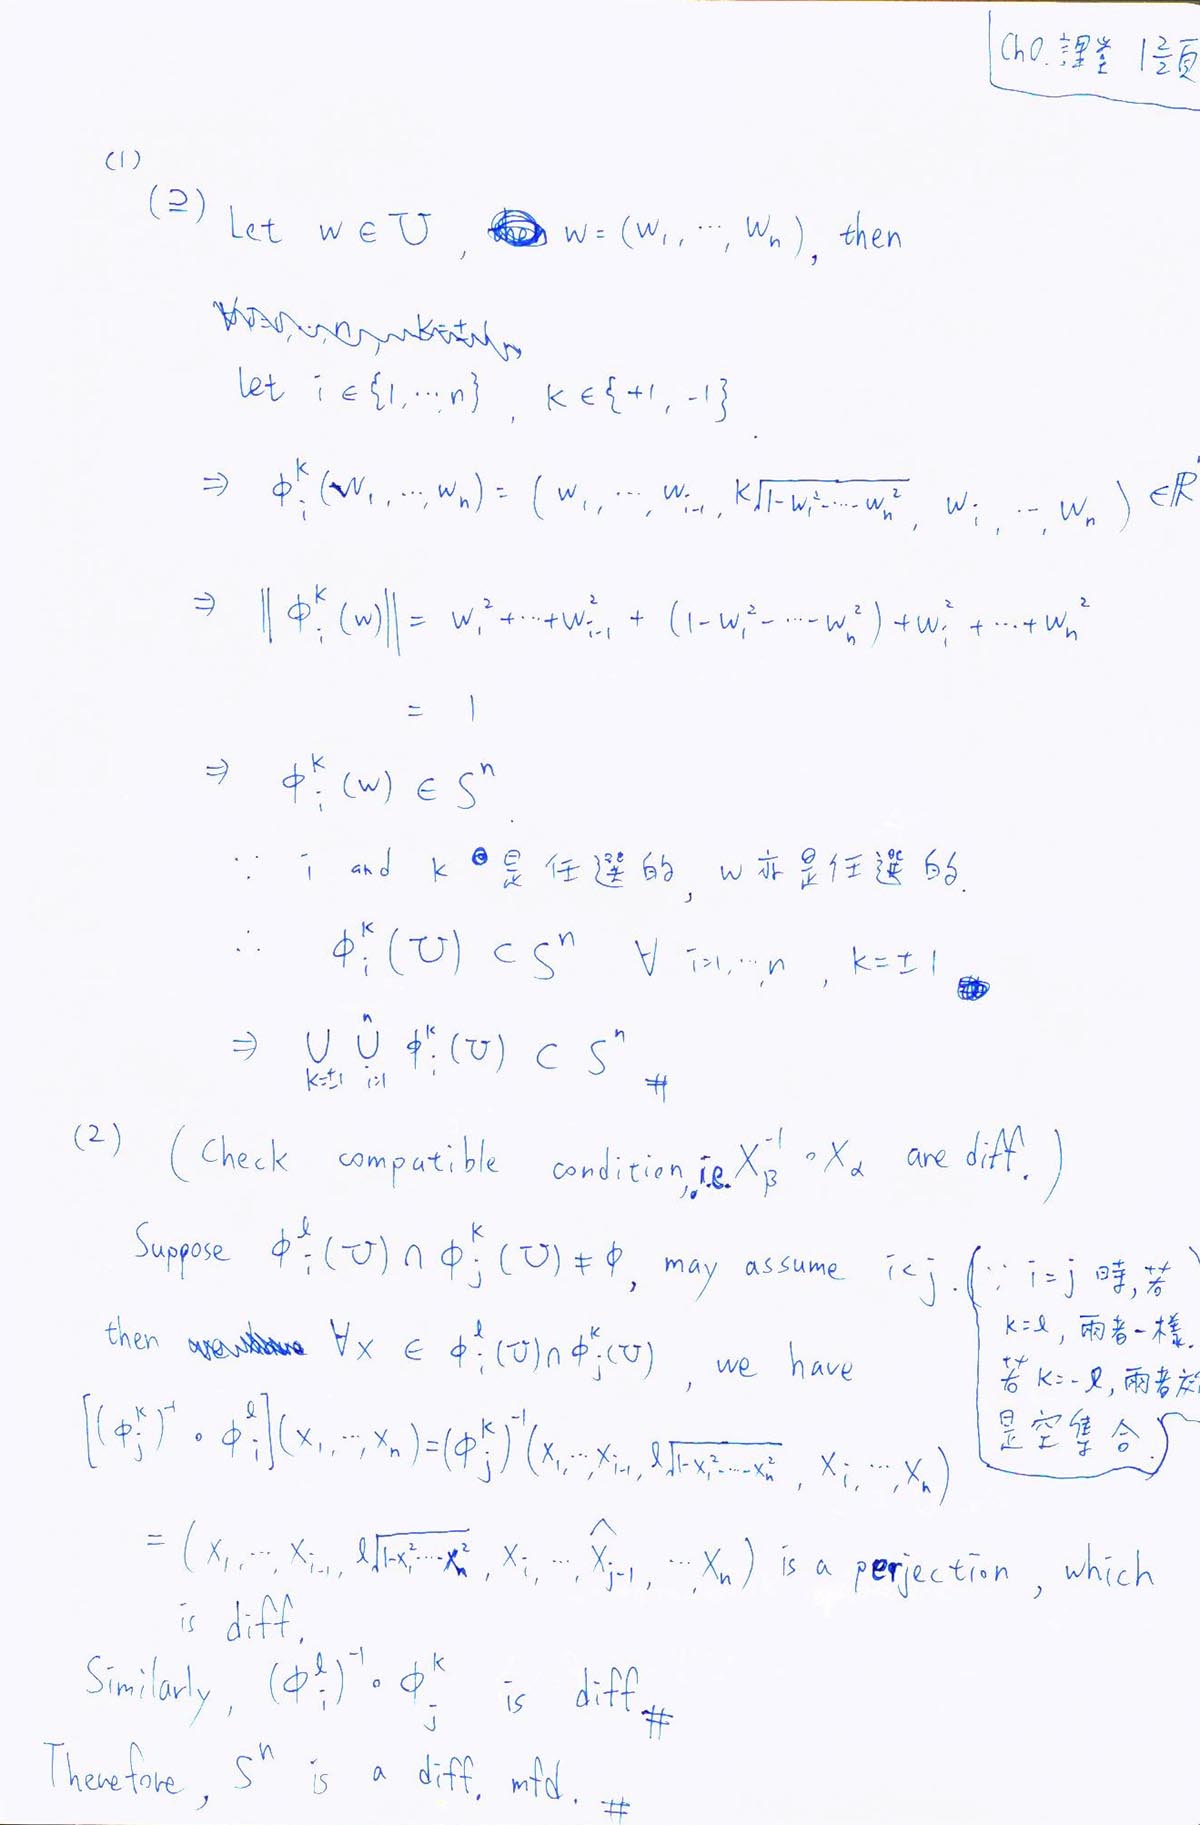 Ch0. 課堂 1 2/2 頁
(1)
(⊇) Let w ∈ U, w = (w₁, ⋯, wₙ), then
let i ∈ {1, ⋯, n}, k ∈ {+1, -1}.
⇒ ϕᵢᵏ(w₁, ⋯, wₙ) = (w₁, ⋯, wᵢ₋₁, k√(1-w₁²-⋯-wₙ²), wᵢ, ⋯, wₙ) ∈ ℝ
⇒ ‖ϕᵢᵏ(w)‖ = w₁²+⋯+wᵢ₋₁² + (1-w₁²-⋯-wₙ²)+wᵢ²+⋯+wₙ²
= 1
⇒ ϕᵢᵏ(w) ∈ Sⁿ.
∵ i and k 是任選的, w 亦是任選的.
∴ ϕᵢᵏ(U) ⊂ Sⁿ ∀ i=1,⋯,n, k=±1
⇒ ∪_{k=±1} ∪_{i=1}^{n} ϕᵢᵏ(U) ⊂ Sⁿ #
(2) (Check compatible condition, i.e. X_β⁻¹ ∘ X_α are diff.)
Suppose ϕᵢˡ(U) ∩ ϕⱼᵏ(U) ≠ ϕ, may assume i<j. (∵ i=j 時, 若
k=l, 兩者一樣.
若 k=-l, 兩者
是空集合.)
then ∀x ∈ ϕᵢˡ(U)∩ϕⱼᵏ(U), we have
[(ϕⱼᵏ)⁻¹ ∘ ϕᵢˡ](x₁, ⋯, xₙ) = (ϕⱼᵏ)⁻¹(x₁, ⋯, xᵢ₋₁, l√(1-x₁²-⋯-xₙ²), xᵢ, ⋯, xₙ)
= (x₁, ⋯, xᵢ₋₁, l√(1-x₁²-⋯-xₙ²), xᵢ, ⋯, x̂ⱼ₋₁, ⋯, xₙ) is a perjection, which
is diff.
Similarly, (ϕᵢˡ)⁻¹ ∘ ϕⱼᵏ is diff. #
Therefore, Sⁿ is a diff. mfd. #